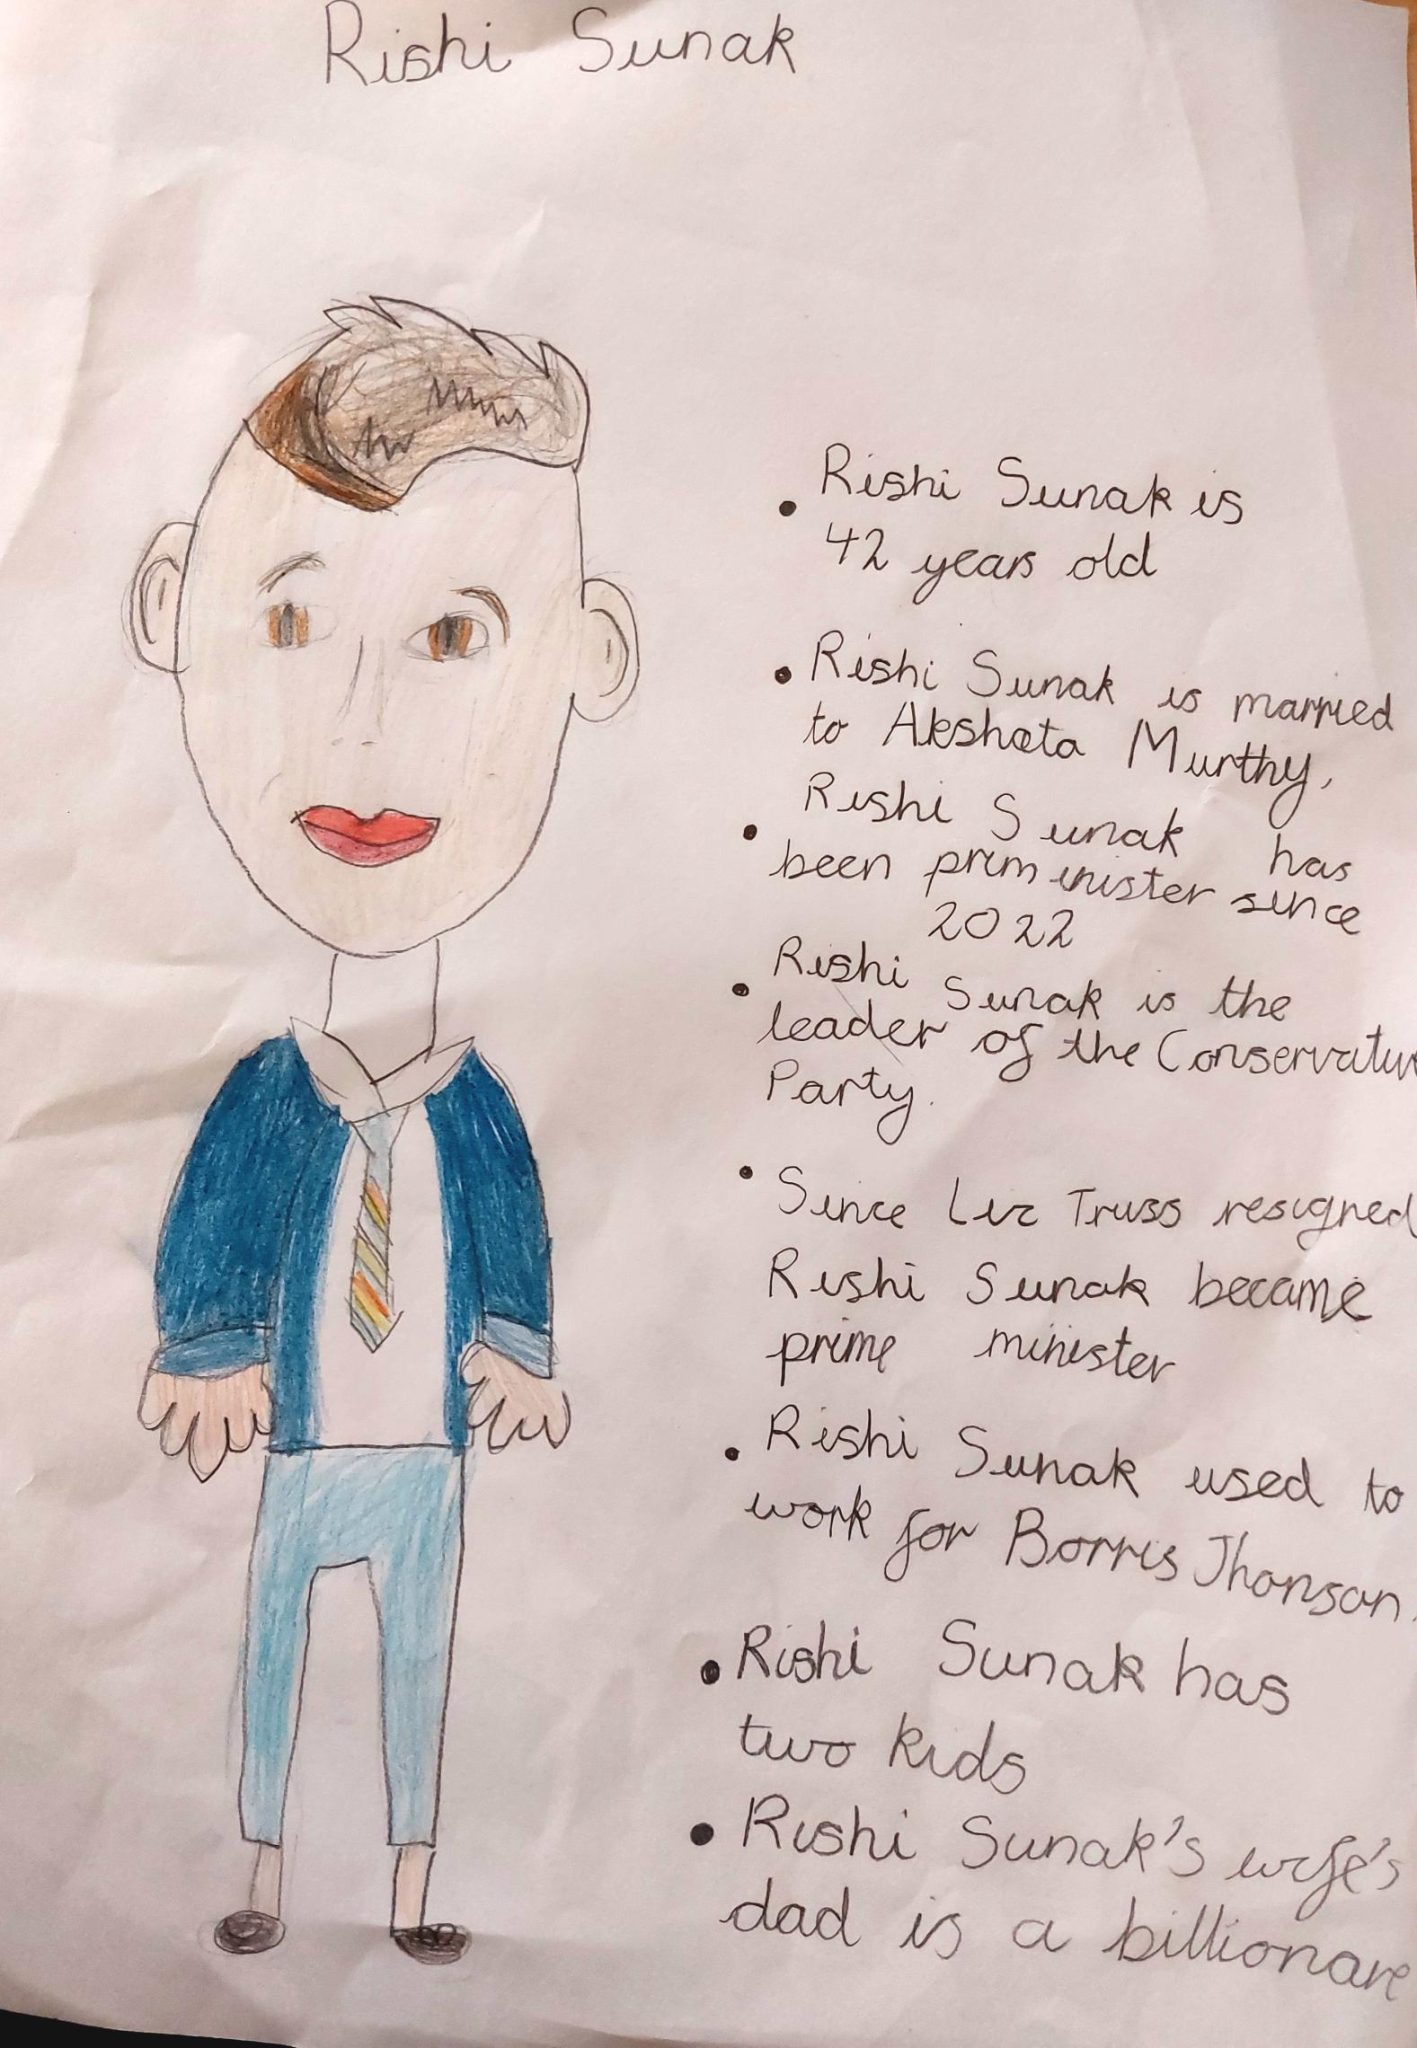 Rishi Sunak
• Rishi Sunak is
42 years old
• Rishi Sunak is married
to Akshata Murthy,
• Rishi Sunak has
been prim inister since
2022
• Rishi Sunak is the
leader of the Conservative
Party.
• Since Liz Truss resigned
Rishi Sunak became
prime minister
• Rishi Sunak used to
work for Borris Jhonson.
• Rishi Sunak has
two kids
• Rishi Sunak's wife's
dad is a billionare